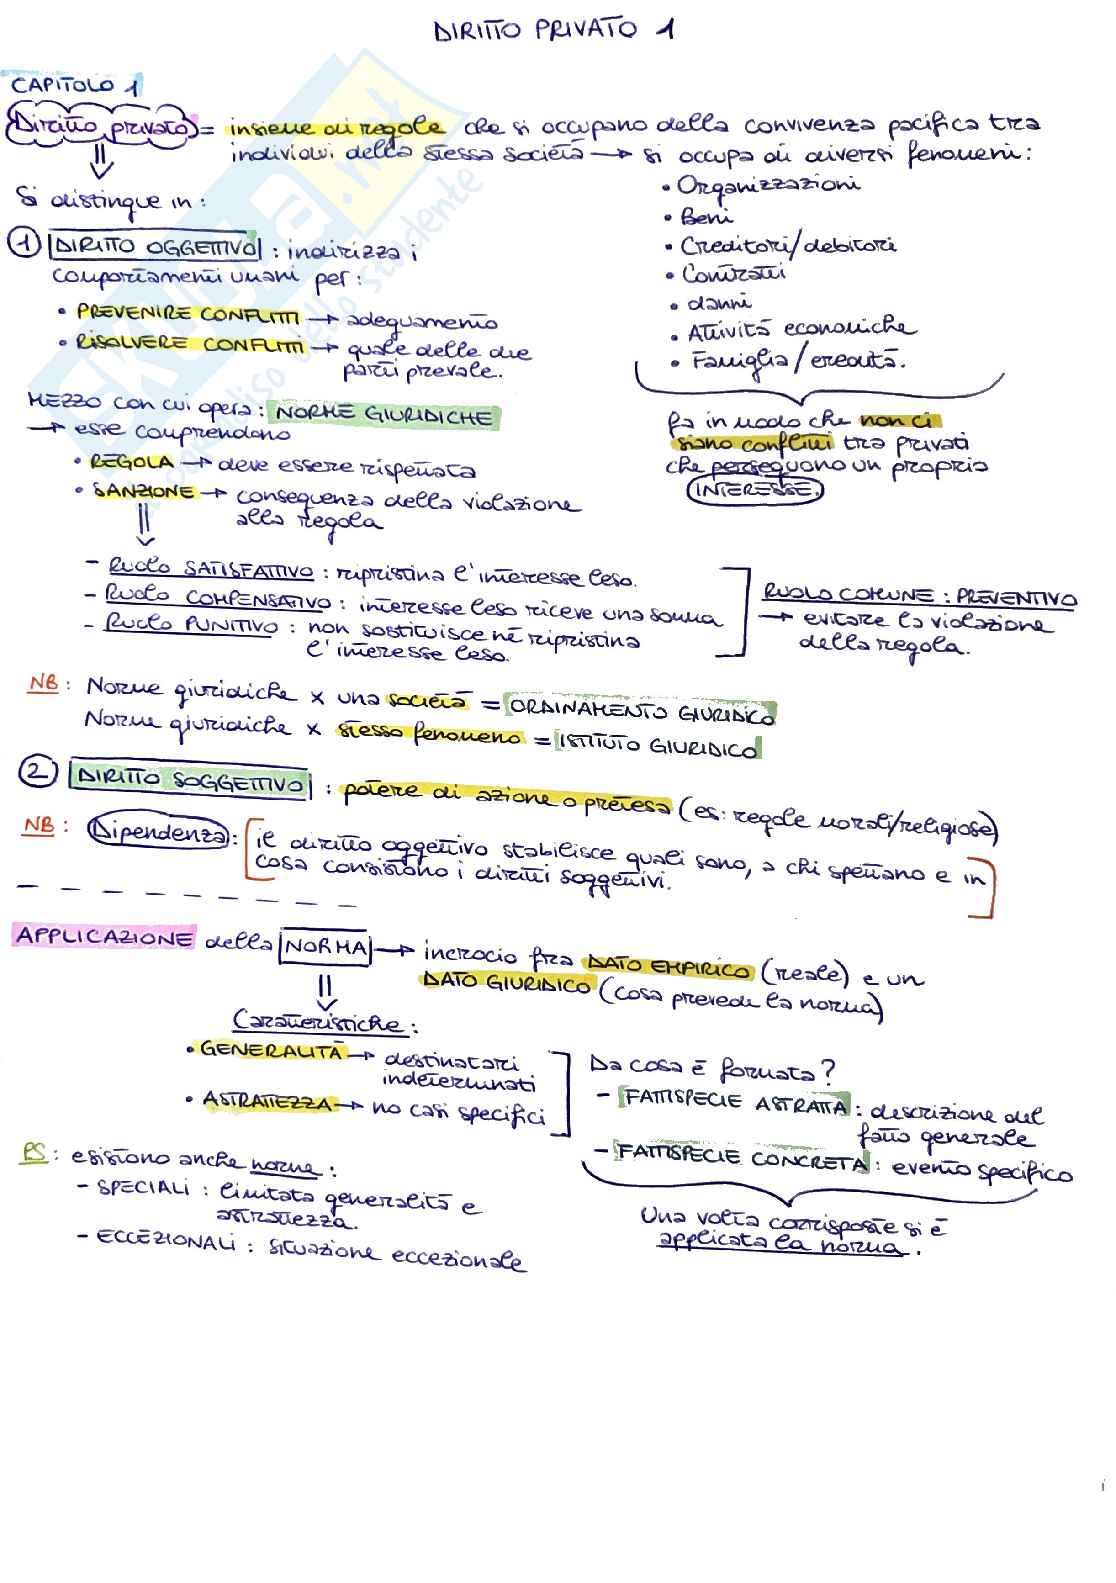 DIRITTO PRIVATO 1
CAPITOLO 1
Diritto privato = insieme di regole che si occupano della convivenza pacifica tra
individui della stessa società → si occupa di diversi fenomeni:
• Organizzazioni
• Beni
• Creditori/debitori
• Contratti
• danni
• Attività economiche
• Famiglia/eredità.
fa in modo che non ci
siano conflitti tra privati
che perseguono un proprio
INTERESSE.
Si distingue in:
1 DIRITTO OGGETTIVO: indirizza i
comportamenti umani per:
• PREVENIRE CONFLITTI → adeguamento
• RISOLVERE CONFLITTI → quale delle due
parti prevale.
MEZZO con cui opera: NORME GIURIDICHE
→ esse comprendono
• REGOLA → deve essere rispettata
• SANZIONE → conseguenza della violazione
alla regola
- Ruolo SATISFATTIVO: ripristina l'interesse leso.
- Ruolo COMPENSATIVO: interesse leso riceve una somma
- Ruolo PUNITIVO: non sostituisce nè ripristina
l'interesse leso.
RUOLO COMUNE: PREVENTIVO
→ evitare la violazione
della regola.
NB: Norme giuridiche x una società = ORDINAMENTO GIURIDICO
Norme giuridiche x stesso fenomeno = ISTITUTO GIURIDICO
2 DIRITTO SOGGETTIVO: potere di azione o pretesa (es: regole morali/religiose)
NB: Dipendenza: [il diritto oggettivo stabilisce quali sono, a chi spettano e in
cosa consistono i diritti soggettivi.]
APPLICAZIONE della NORMA → incrocio fra DATO EMPIRICO (reale) e un
DATO GIURIDICO (cosa prevede la norma)
Caratteristiche:
• GENERALITÀ → destinatari
indeterminati
• ASTRATTEZZA → no casi specifici
Da cosa è formata?
- FATTISPECIE ASTRATTA: descrizione del
fatto generale
- FATTISPECIE CONCRETA: evento specifico
Una volta corrisposte si è
applicata la norma.
PS: esistono anche norme:
- SPECIALI: limitata generalità e
astrattezza.
- ECCEZIONALI: situazione eccezionale
SKUOLA.net
dello studente
i